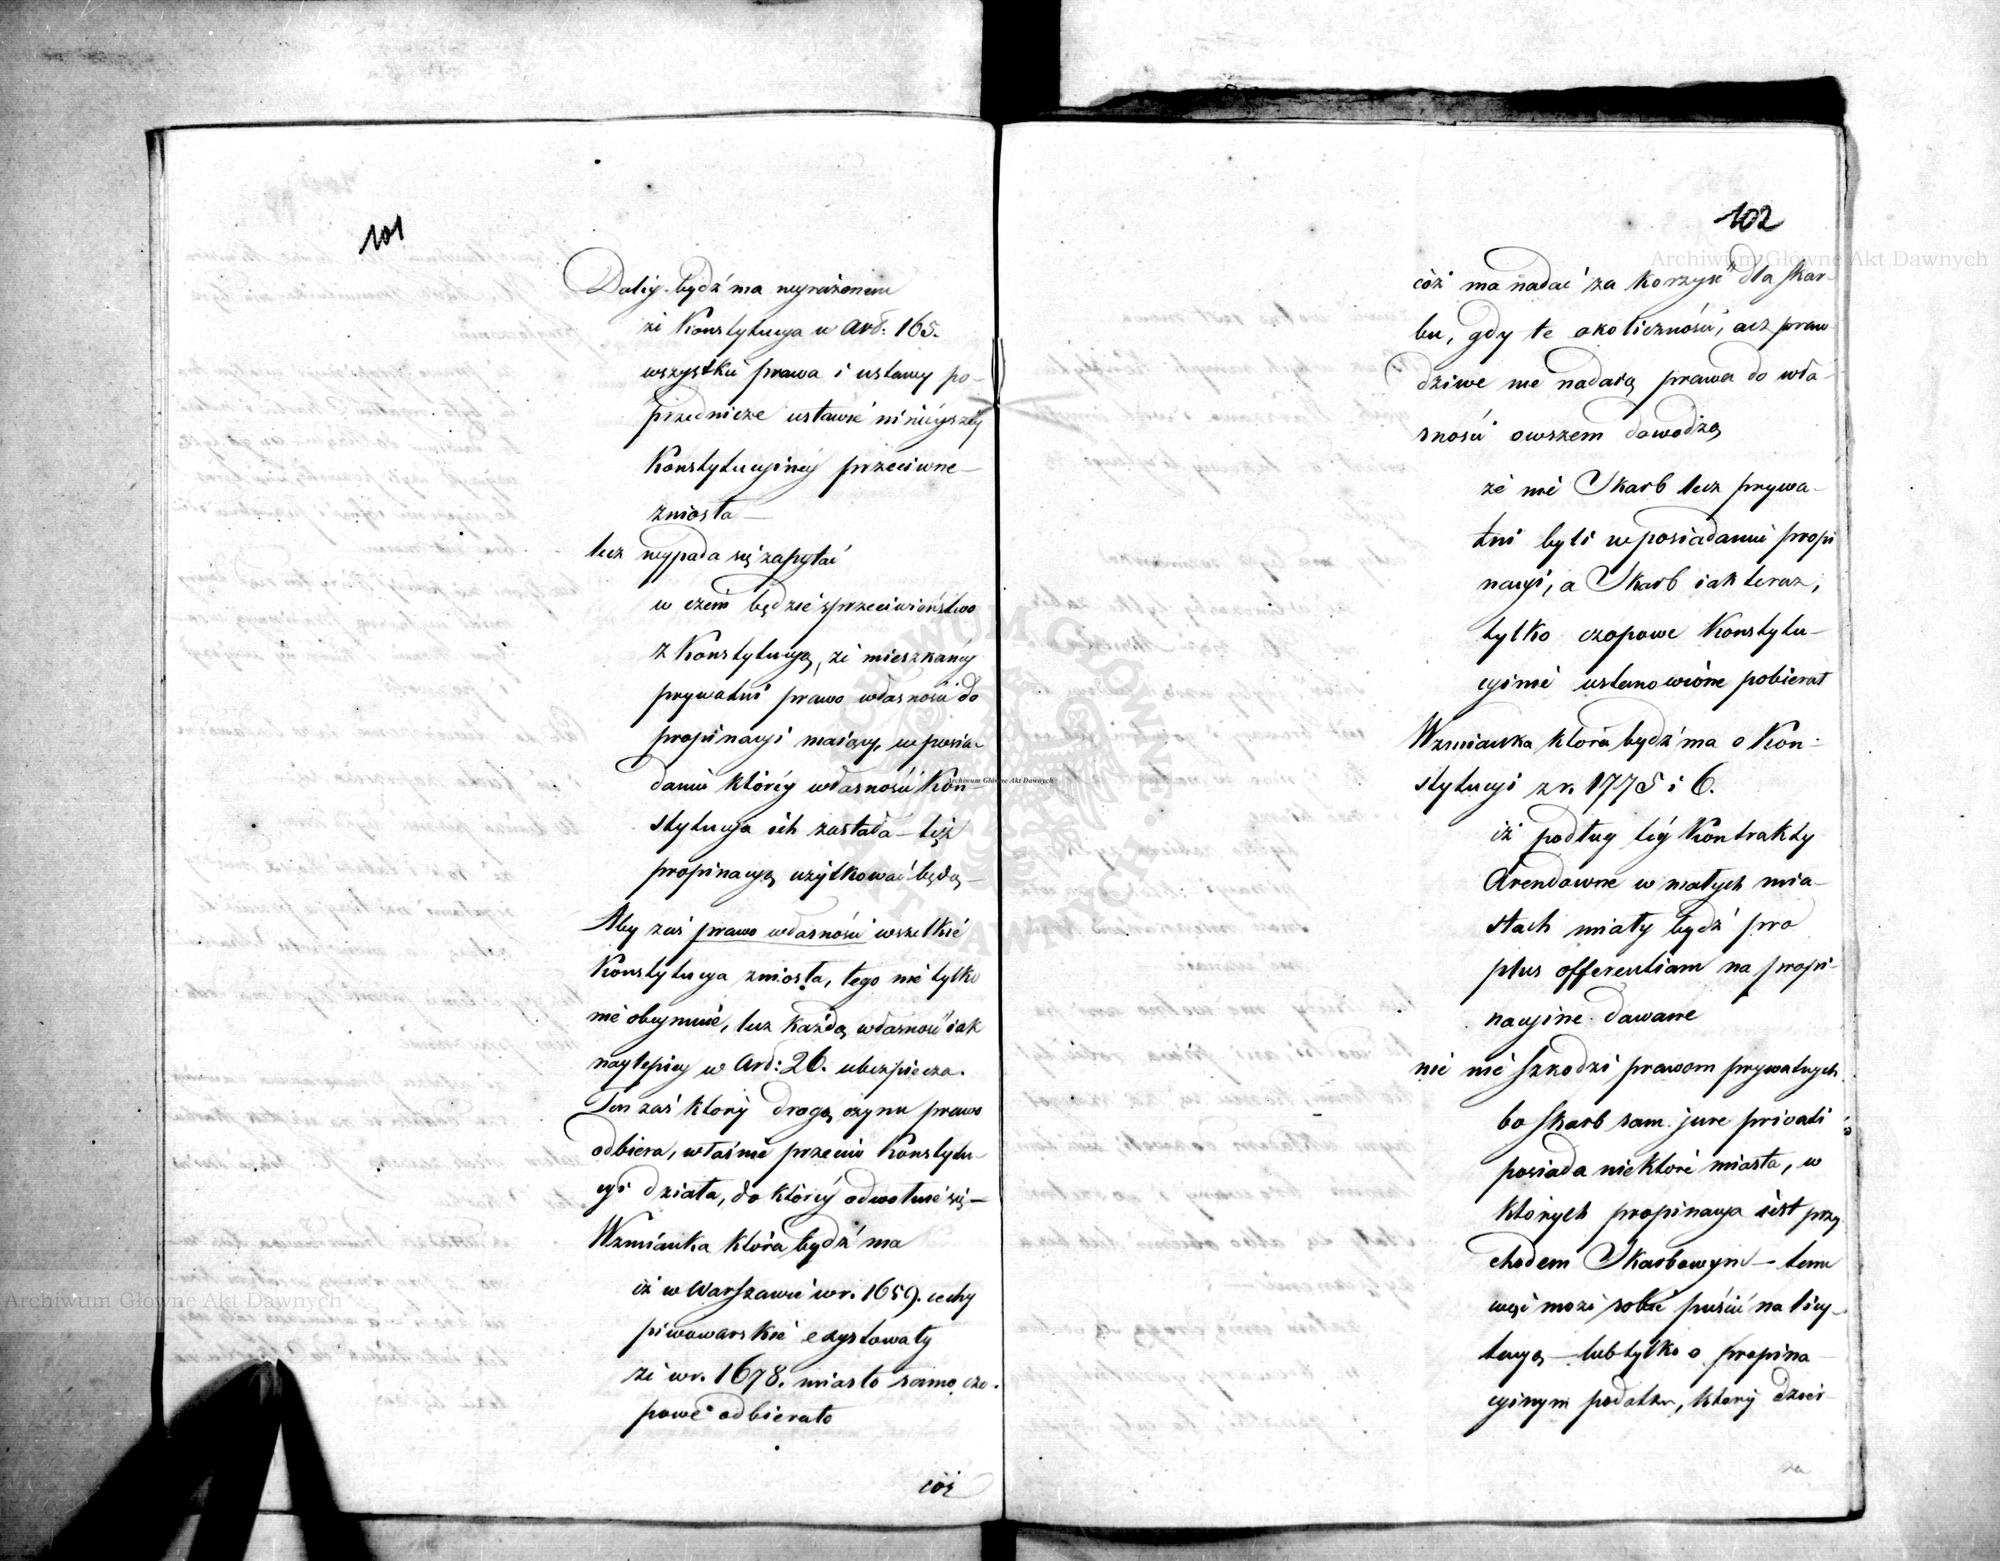 101
Daley bydź ma wyrażonem
że Konstytucya w Art: 165.
wszystkie prawa i ustawy po-
przednicze ustawie ninieyszey
Konstytucyiney przeciwne –
zniosła –
lecz wypada się zapytać
w czem będzie sprzeciwieństwo
z Konstytucyą, że mieszkańcy
prywatni prawo własności do
propinacyi maiący, w posia-
daniu którey własności Kon-
stytucya ich zastała – tęż
propinacyą użytkować będą –
Aby zaś prawo własności wszelkie
Konstytucya zniosła, tego nie tylko
nie obeymuie, lecz każdą własność iak
naylepiey w Art: 26. ubezpiecza.
Ten zaś który drogą czynu prawo
odbiera, właśnie przeciw Konstytu-
cyi działa, do którey odwołuie się –
Wzmianka która bydź ma
iż w Warszawie w r. 1659. cechy
piwowarskie exystowały
że w r. 1678. miasto samo czo-
powe odbierało
cóż
102
cóż ma nadać za korzyść dla skar-
bu, gdy te okoliczności, acz praw-
dziwe nie nadaią prawa do wła-
sności owszem dowodzą
że nie Skarb lecz prywa-
tni byli w posiadaniu propi
nacyi, a Skarb iak teraz,
tylko czopowe Konstytu-
cyinie ustanowione pobierał
Wzmianka która bydź ma o Kon-
stytucyi z r. 1775 i 6.
iż podług tey Kontrakty
Arendowne w małych mia-
stach miały bydź pro
plus offerentiam na propi-
nacyine dawane
nic nie szkodzi prawom prywatnych
bo skarb sam jure privati
posiada niektóre miasta, w
których propinacya iest przy
chodem Skarbowym – temu
więc może sobie puścić na licy-
tacyą – lub tylko o propina
cyinym podatku, który dzier-